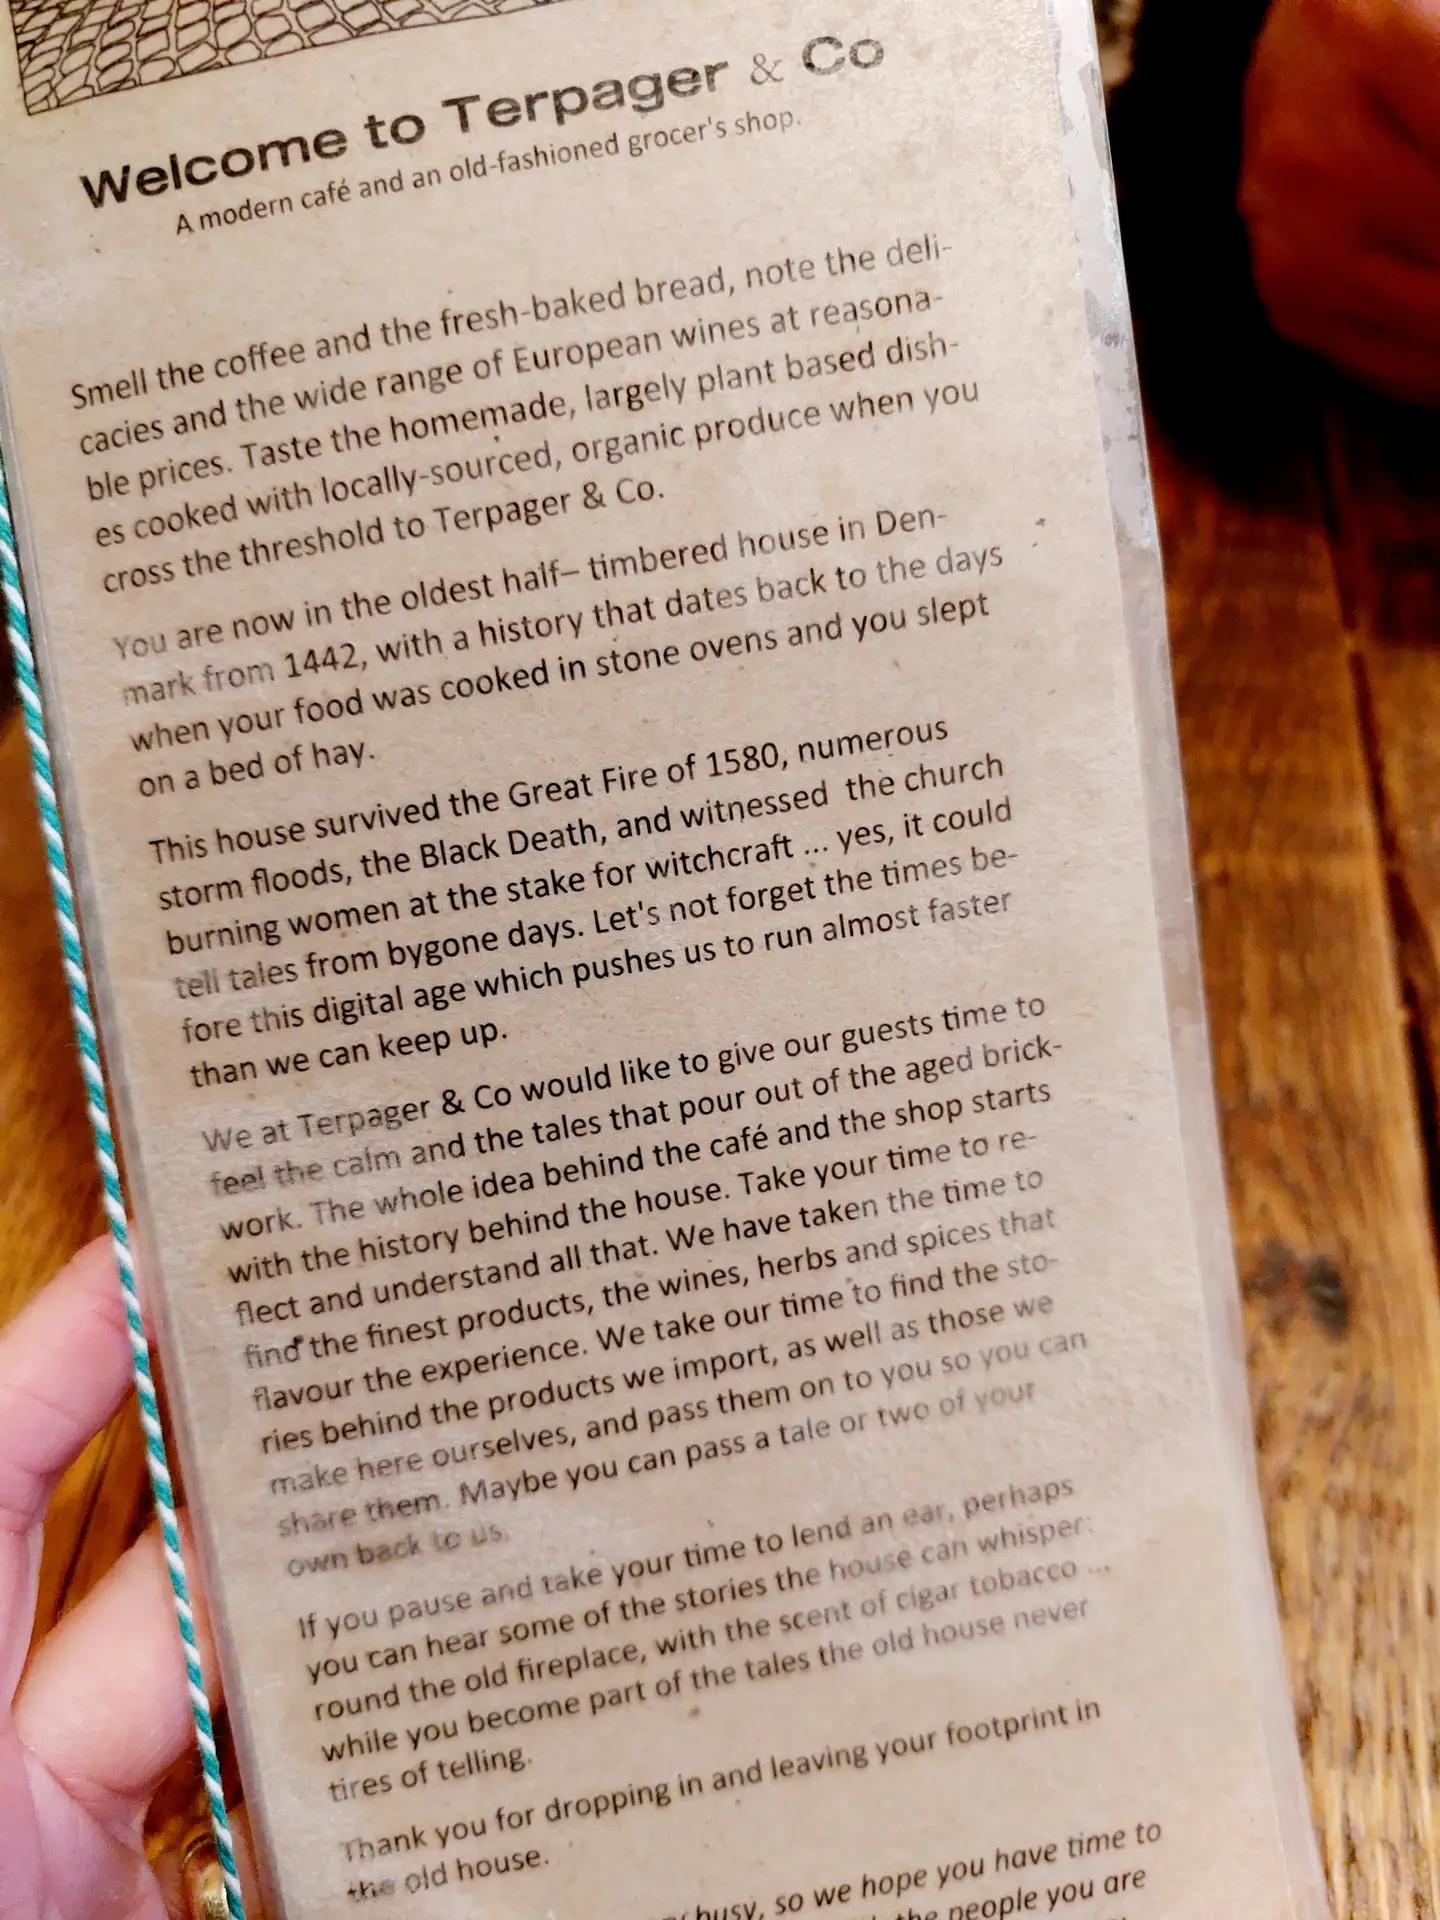 Welcome to Terpager & Co
A modern café and an old-fashioned grocer's shop.
Smell the coffee and the fresh-baked bread, note the deli-
cacies and the wide range of European wines at reasona-
ble prices. Taste the homemade, largely plant based dish-
es cooked with locally-sourced, organic produce when you
cross the threshold to Terpager & Co.
You are now in the oldest half– timbered house in Den-
mark from 1442, with a history that dates back to the days
when your food was cooked in stone ovens and you slept
on a bed of hay.
This house survived the Great Fire of 1580, numerous
storm floods, the Black Death, and witnessed the church
burning women at the stake for witchcraft ... yes, it could
tell tales from bygone days. Let's not forget the times be-
fore this digital age which pushes us to run almost faster
than we can keep up.
We at Terpager & Co would like to give our guests time to
feel the calm and the tales that pour out of the aged brick-
work. The whole idea behind the café and the shop starts
with the history behind the house. Take your time to re-
flect and understand all that. We have taken the time to
find the finest products, the wines, herbs and spices that
flavour the experience. We take our time to find the sto-
ries behind the products we import, as well as those we
make here ourselves, and pass them on to you so you can
share them. Maybe you can pass a tale or two of your
own back to us.
If you pause and take your time to lend an ear, perhaps
you can hear some of the stories the house can whisper:
round the old fireplace, with the scent of cigar tobacco ...
while you become part of the tales the old house never
tires of telling.
Thank you for dropping in and leaving your footprint in
the old house.
busy, so we hope you have time to
the people you are